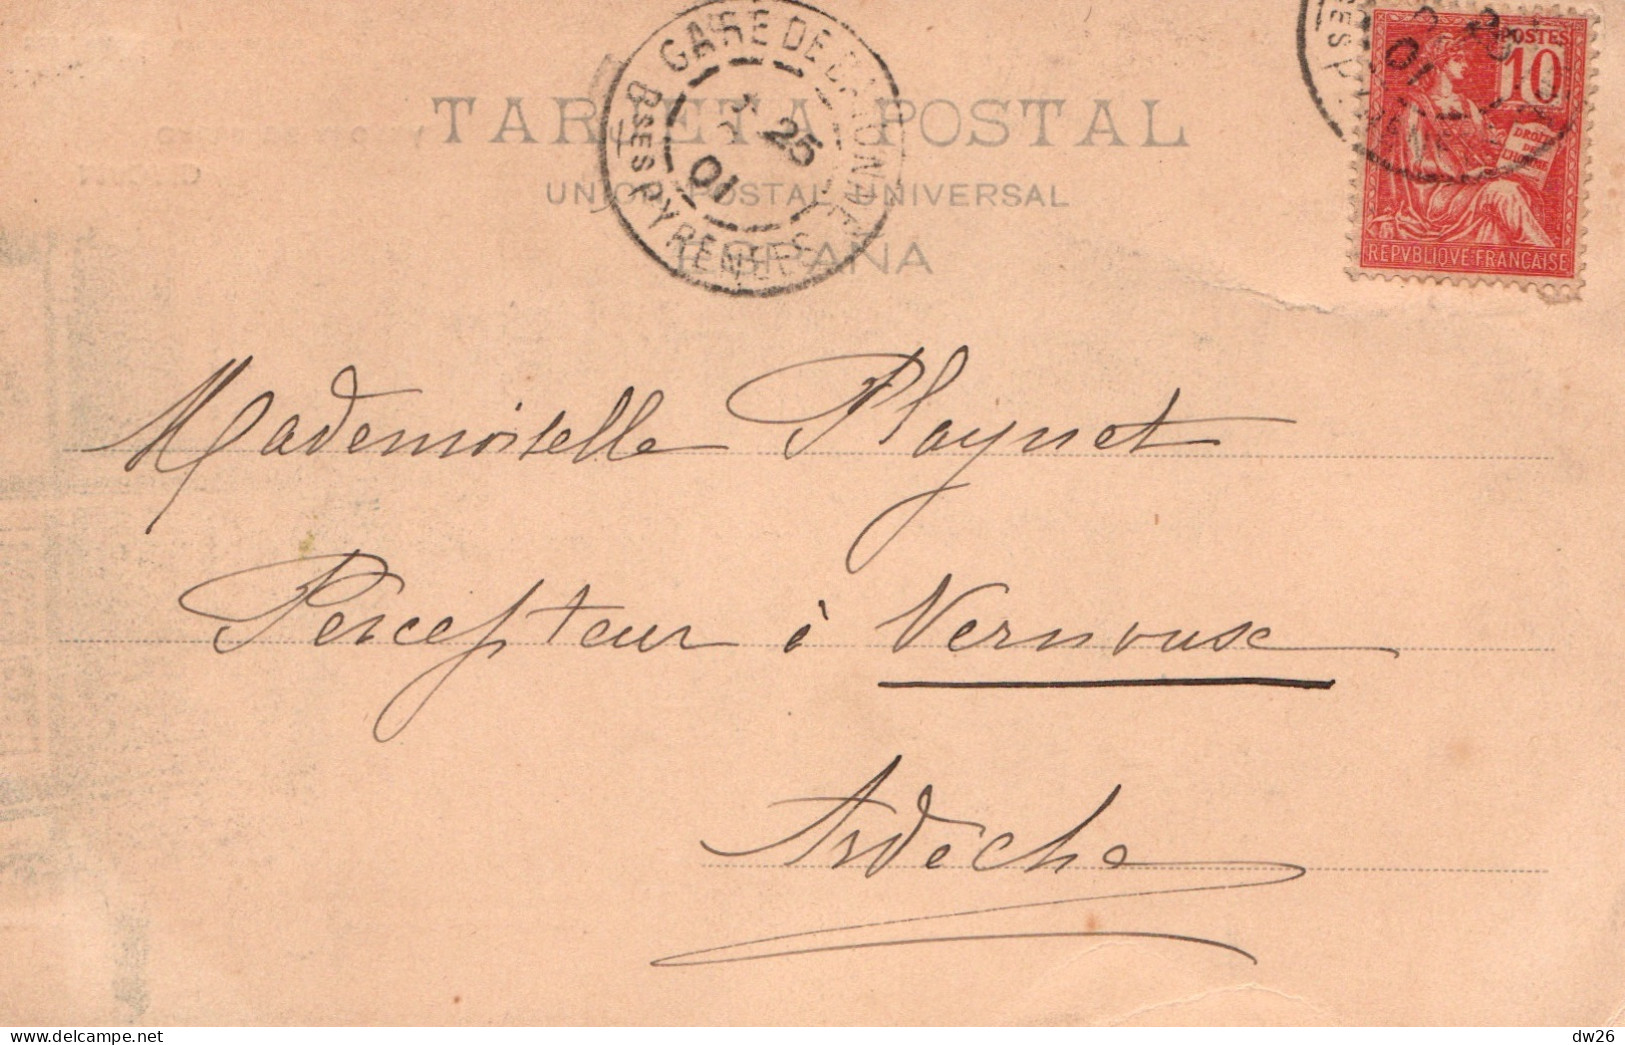 TARJETA POSTAL
UNION POSTAL UNIVERSAL
ESPAÑA
GARE DE BAYONNE
BSES PYRENEES
25
01
POSTES
10
DROITS
DE
L'HOMME
REPVBLIQVE FRANÇAISE
Mademoiselle Playnet
Percepteur à Vernoux
Ardèche
dw26